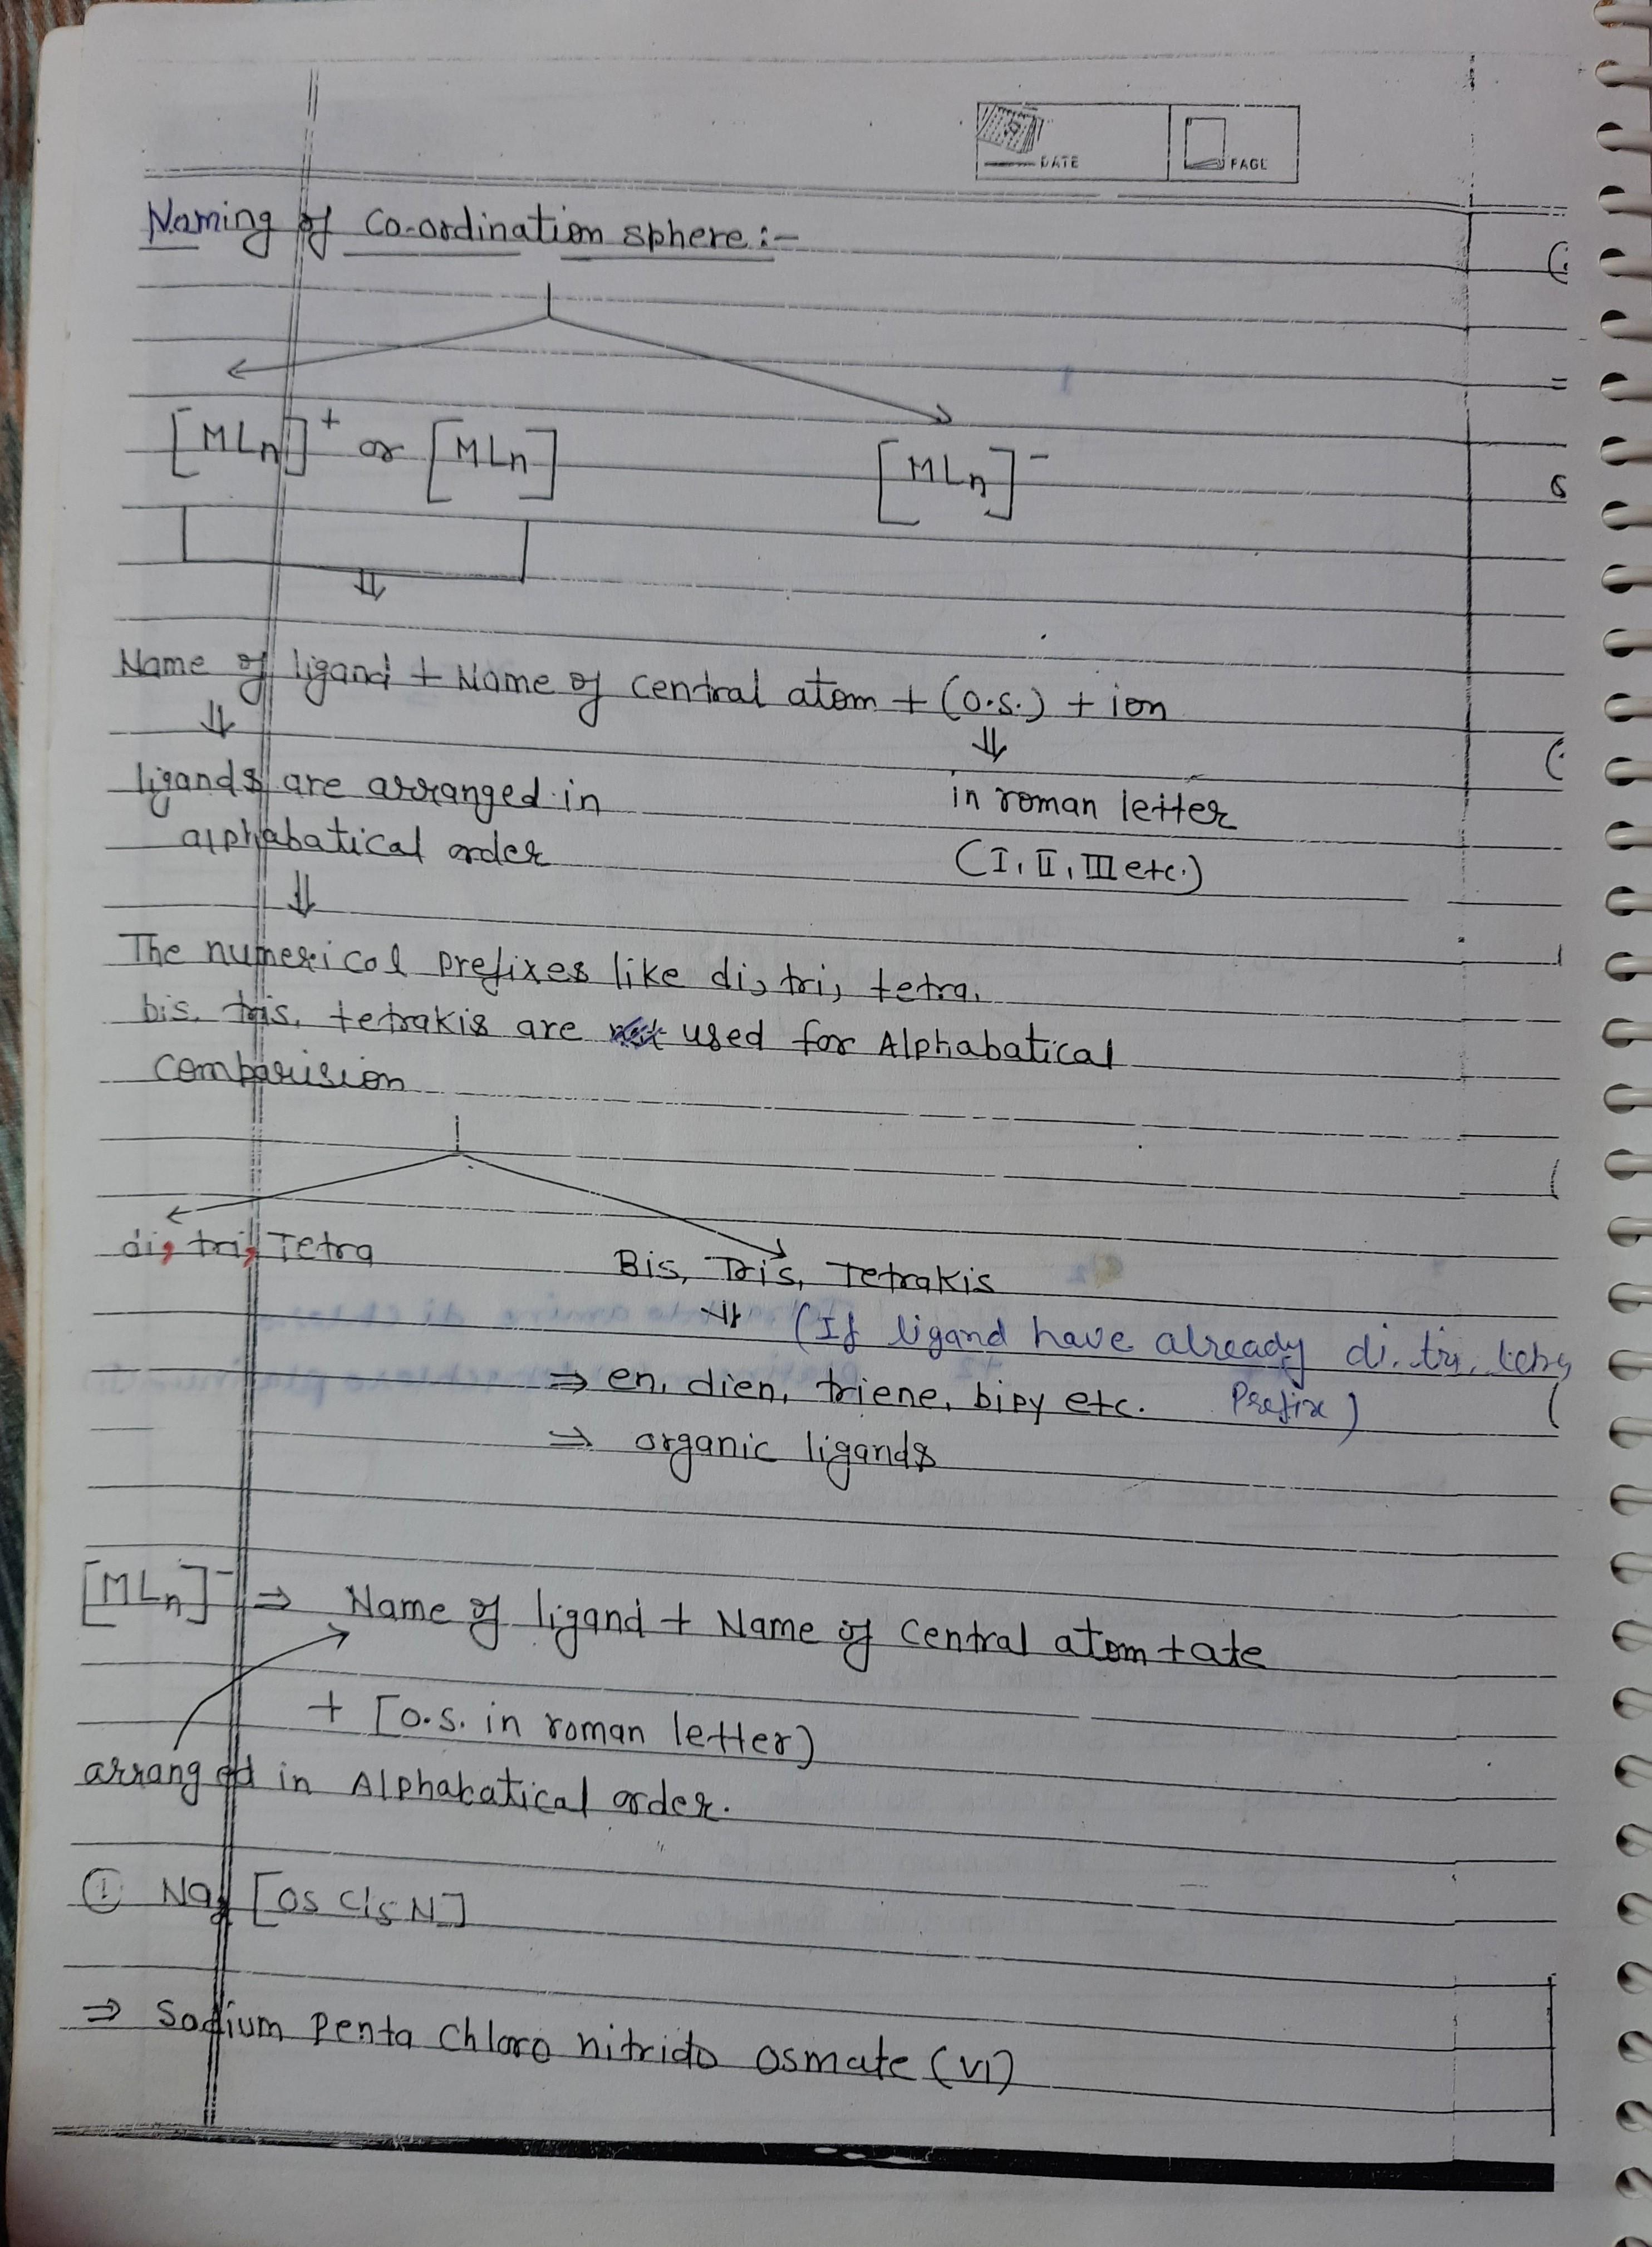 DATE
PAGE
Naming of Co-ordination sphere :-
[MLn]⁺ or [MLn]
[MLn]⁻
Name of ligand + Name of central atom + (o.s.) + ion
ligands are arranged in
alphabatical order
in roman letter
(I, II, III etc.)
The numerical prefixes like di, tri, tetra,
bis, tris, tetrakis are not used for Alphabatical
comparision
di, tri, Tetra
Bis, Tris, Tetrakis
(If ligand have already di, tri, tetra
Prefix)
⇒ en, dien, triene, bipy etc.
⇒ organic ligands
[MLn]⁻ ⇒ Name of ligand + Name of central atom + ate
+ [o.s. in roman letter)
arranged in Alphabatical order.
① Na₂ [Os Cl₅ N]
⇒ Sodium Penta Chloro nitrido osmate (VI)